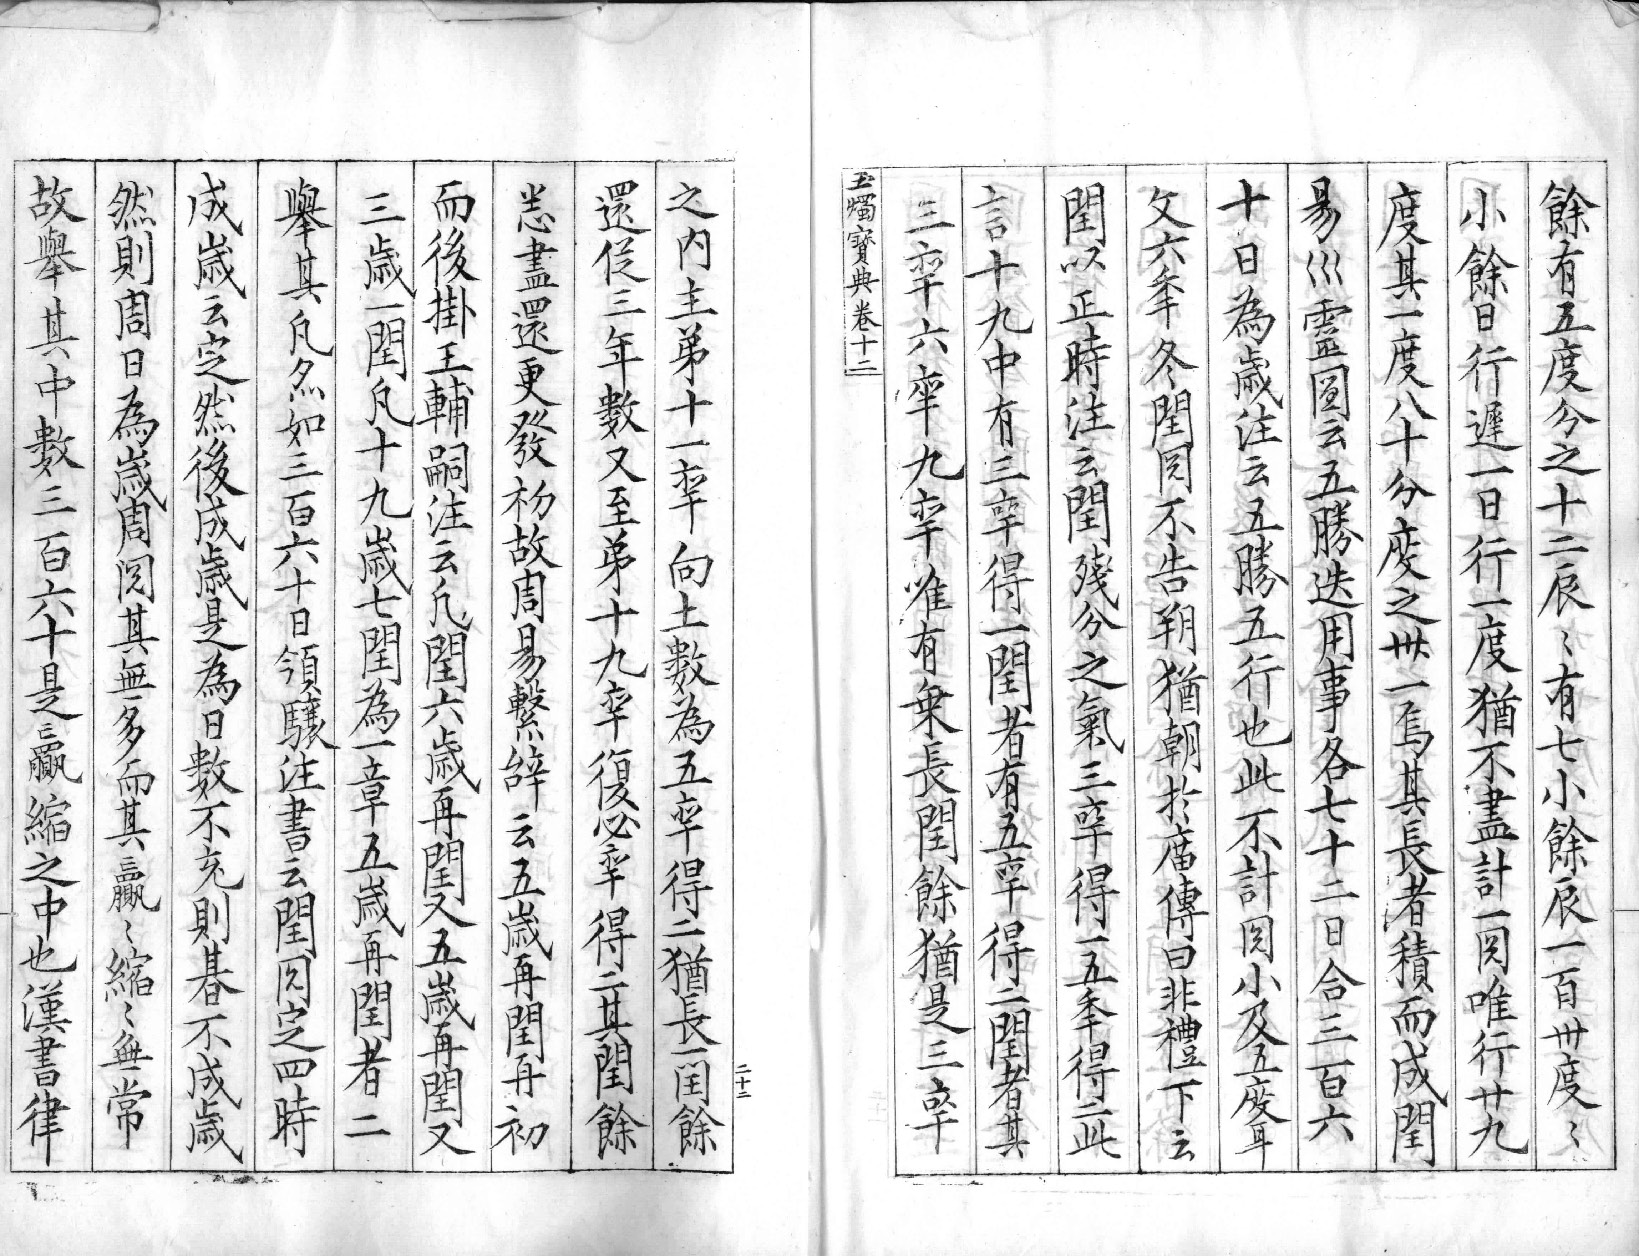 餘有五度分之十二辰〻有七小餘辰一百卅度〻
小餘日行遲一日行一度猶不盡計一囝唯行廿九
度其一度八十分度之卅一焉其長者積而成閏
易巛靈圖云五勝迭用事各七十二日合三百六
十日為歲注云五勝五行也此不計囝小及五度耳
文六年冬閏囝不告朔猶朝於庿傳曰非禮下云
閏以正時注云閏殘分之氣三年得一五年得二此
言十九中有三年得一閏者有五年得二閏者其
三年六年九年唯有乗長閏餘猶是三年
玉燭寶典卷十二
之内主弟十一年向土數為五年得二猶長一閏餘
還從三年數又至弟十九年復必年得二其閏餘
悉盡還更發初故周易繫辞云五歲再閏再初
而後掛王輔嗣注云凡閏六歲再閏又五歲再閏又
三歲一閏凡十九歲七閏為一章五歲再閏者二
舉其凡尒如三百六十日領驥注書云閏囝定四時
成歲云定然後成歲是為日數不充則朞不成歲
然則周日為歲周囝其無多而其贏〻縮〻無常
故舉其中數三百六十是贏縮之中也漢書律
二十三